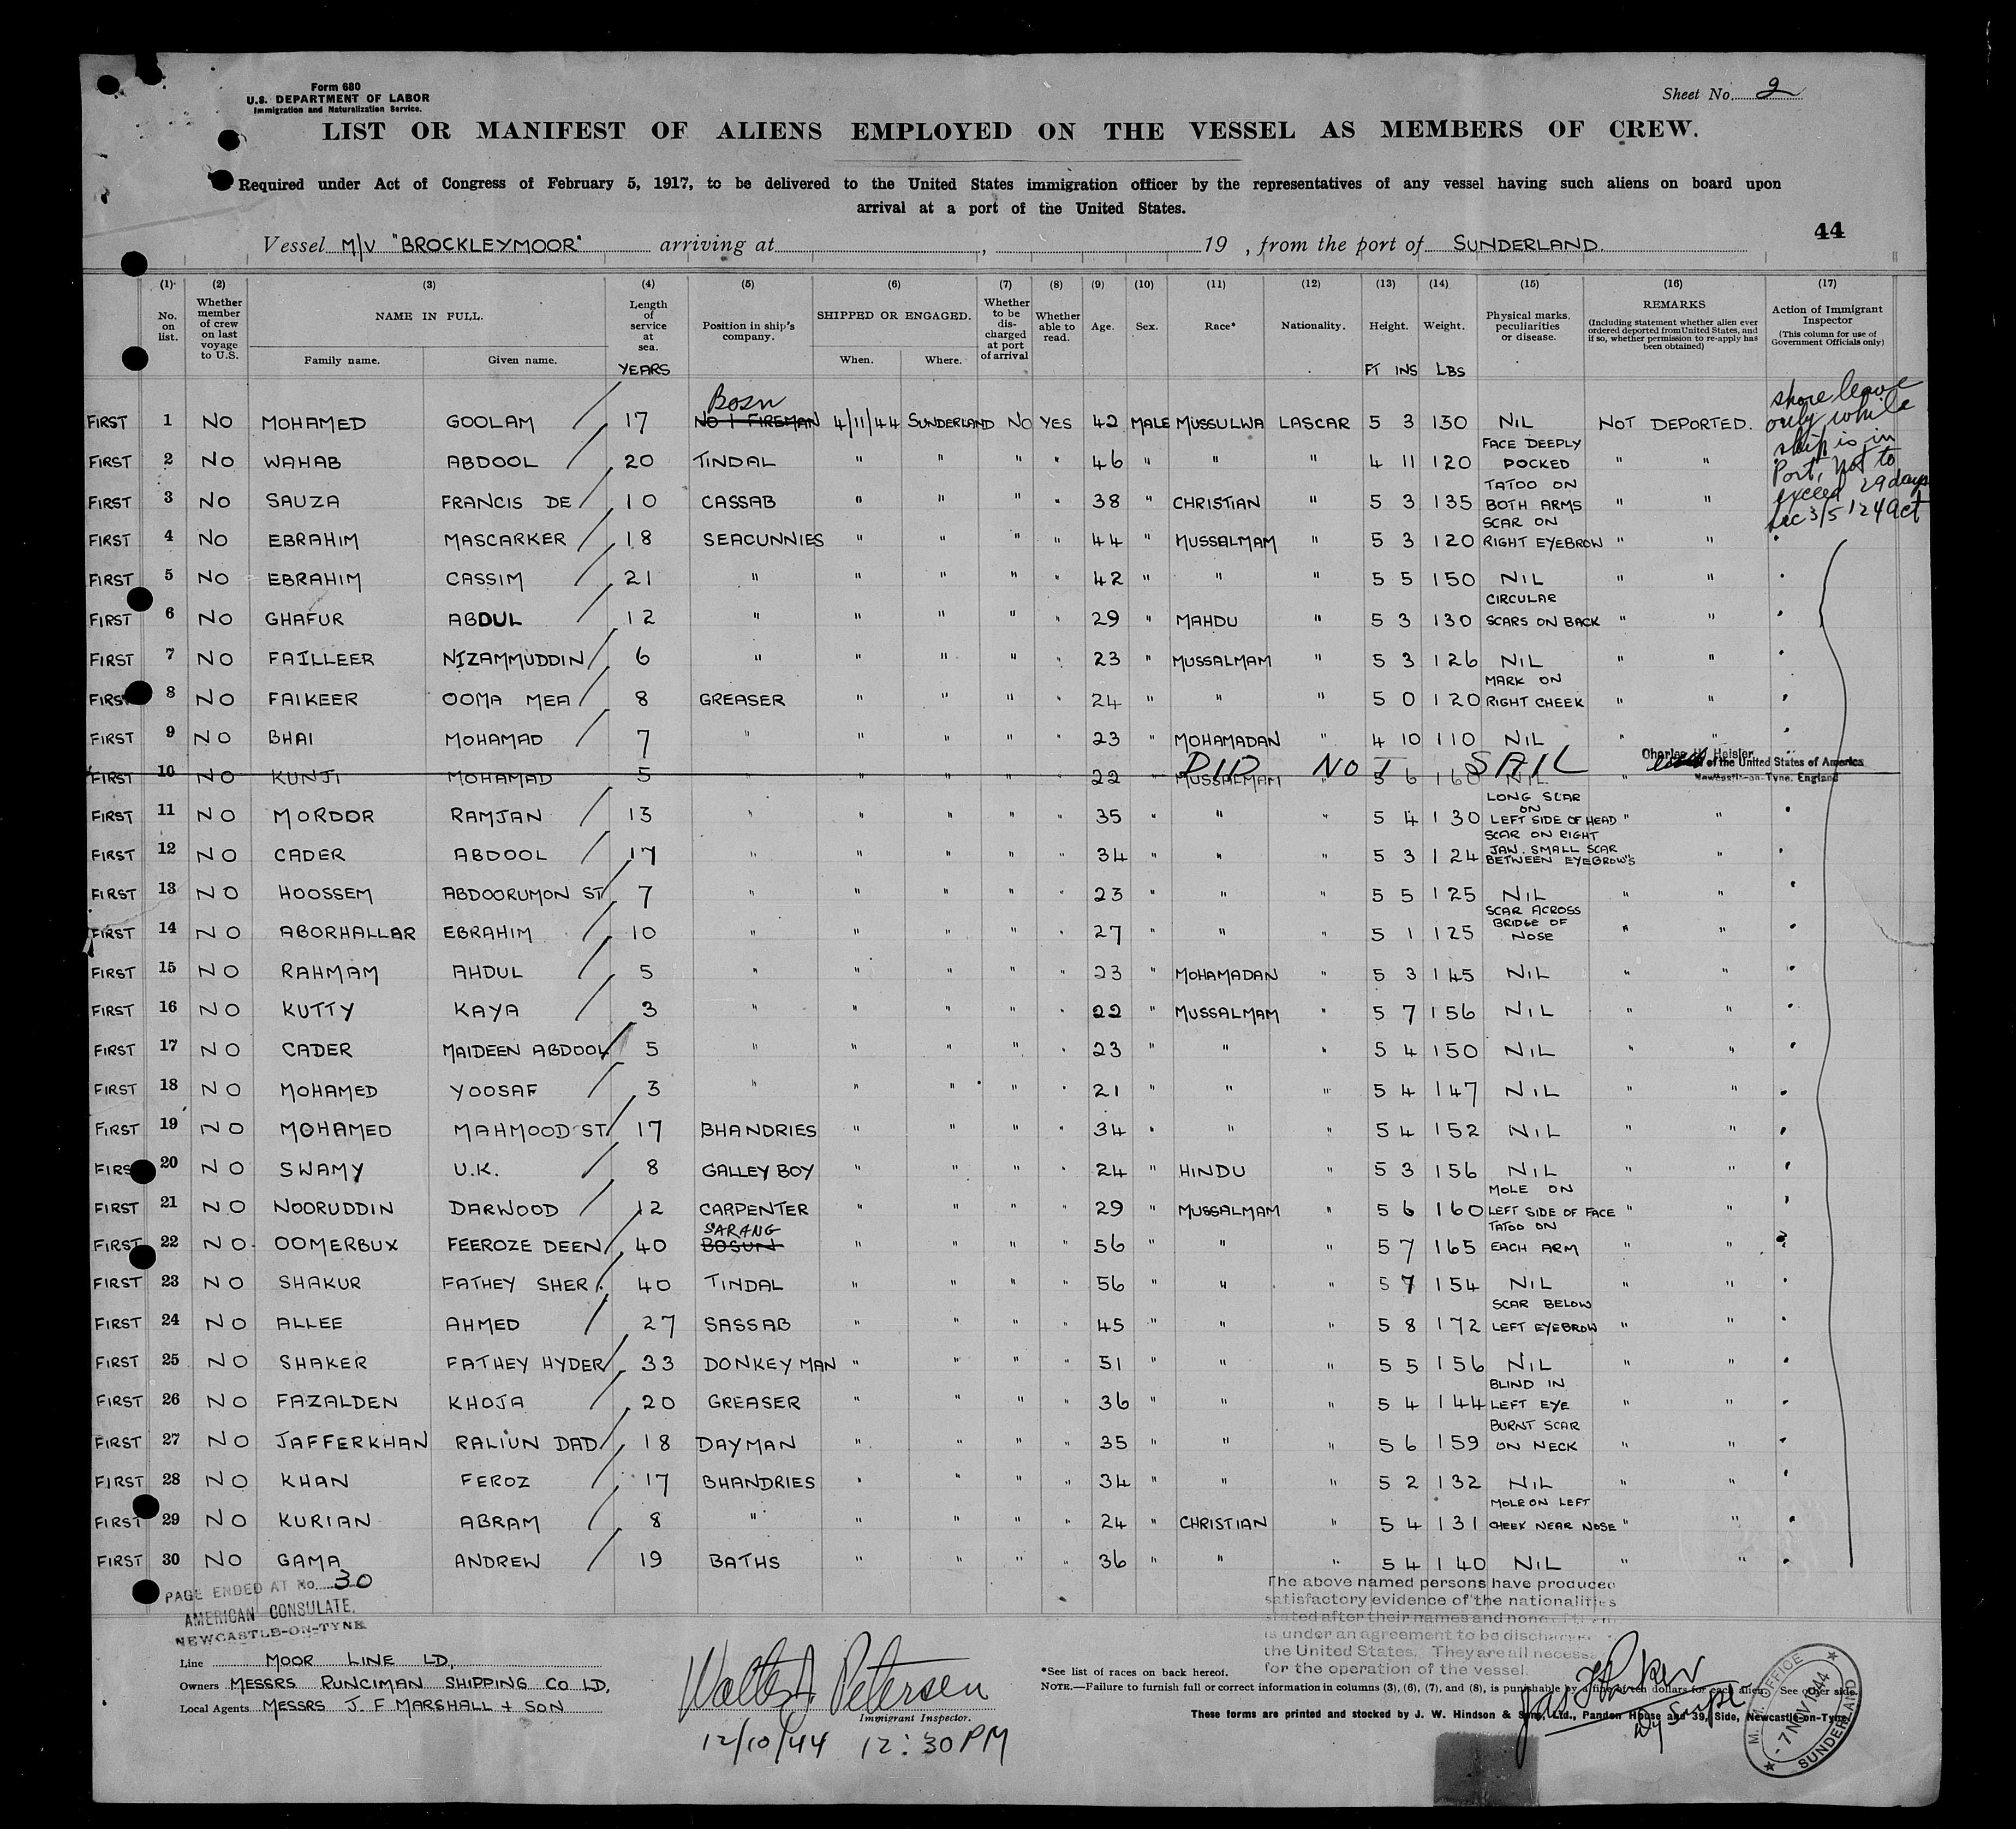 Form 680
U.S. DEPARTMENT OF LABOR
Immigration and Naturalization Service.
Sheet No. 2
LIST OR MANIFEST OF ALIENS EMPLOYED ON THE VESSEL AS MEMBERS OF CREW.
Required under Act of Congress of February 5, 1917, to be delivered to the United States immigration officer by the representatives of any vessel having such aliens on board upon
arrival at a port of the United States.
Vessel M/V "BROCKLEYMOOR" arriving at , 19 , from the port of SUNDERLAND.
44
(1) (2) (3) (4) (5) (6) (7) (8) (9) (10) (11) (12) (13) (14) (15) (16) (17)
No. on list. Whether member of crew on last voyage to U.S. NAME IN FULL. Family name. Given name. Length of service at sea. YEARS Position in ship's company. SHIPPED OR ENGAGED. When. Where. Whether to be discharged at port of arrival Whether able to read. Age. Sex. Race* Nationality. Height. FT INS Weight. LBS Physical marks, peculiarities or disease. REMARKS (Including statement whether alien ever ordered deported from United States, and if so, whether permission to re-apply has been obtained) Action of Immigrant Inspector (This column for use of Government Officials only)
shore leave
only while
ship is in
Port, not to
exceed 29 days
Sec 3/5 '24 Act
Bosn
FIRST 1 NO MOHAMED GOOLAM 17 NO 1 FIREMAN 4/11/44 SUNDERLAND NO YES 42 MALE MUSSULWA LASCAR 5 3 130 NIL NOT DEPORTED.
FIRST 2 NO WAHAB ABDOOL 20 TINDAL " " " " 46 " " " 4 11 120 FACE DEEPLY POCKED " "
FIRST 3 NO SAUZA FRANCIS DE 10 CASSAB " " " " 38 " CHRISTIAN " 5 3 135 TATOO ON BOTH ARMS " "
FIRST 4 NO EBRAHIM MASCARKER 18 SEACUNNIES " " " " 44 " MUSSALMAM " 5 3 120 SCAR ON RIGHT EYEBROW " "
FIRST 5 NO EBRAHIM CASSIM 21 " " " " " 42 " " " 5 5 150 NIL " "
FIRST 6 NO GHAFUR ABDUL 12 " " " " " 29 " MAHDU " 5 3 130 CIRCULAR SCARS ON BACK " "
FIRST 7 NO FAILLEER NIZAMMUDDIN 6 " " " " " 23 " MUSSALMAM " 5 3 126 NIL " "
FIRST 8 NO FAIKEER OOMA MEA 8 GREASER " " " " 24 " " " 5 0 120 MARK ON RIGHT CHEEK " "
FIRST 9 NO BHAI MOHAMAD 7 " " " " " 23 " MOHAMADAN " 4 10 110 NIL " "
DID NOT SAIL
Charles H. Heisler
of the United States of America
Newcastle-on-Tyne, England
FIRST 10 NO KUNJI MOHAMAD 5 22 MUSSALMAM 5 6 160 NIL
FIRST 11 NO MORDOR RAMJAN 13 " " " " " 35 " " " 5 4 130 LONG SCAR ON LEFT SIDE OF HEAD " "
FIRST 12 NO CADER ABDOOL 17 " " " " " 34 " " " 5 3 124 SCAR ON RIGHT JAW. SMALL SCAR BETWEEN EYEBROW'S "
FIRST 13 NO HOOSSEM ABDOORUMON ST 7 " " " " " 23 " " " 5 5 125 NIL " "
FIRST 14 NO ABORHALLAR EBRAHIM 10 " " " " " 27 " " " 5 1 125 SCAR ACROSS BRIDGE OF NOSE " "
FIRST 15 NO RAHMAM AHDUL 5 " " " " " 23 " MOHAMADAN " 5 3 145 NIL " "
FIRST 16 NO KUTTY KAYA 3 " " " " " 22 " MUSSALMAM " 5 7 156 NIL " "
FIRST 17 NO CADER MAIDEEN ABDOOL 5 " " " " " 23 " " " 5 4 150 NIL " "
FIRST 18 NO MOHAMED YOOSAF 3 " " " " " 21 " " " 5 4 147 NIL " "
FIRST 19 NO MOHAMED MAHMOOD ST 17 BHANDRIES " " " " 34 " " " 5 4 152 NIL " "
FIRST 20 NO SWAMY U.K. 8 GALLEY BOY " " " " 24 " HINDU " 5 3 156 NIL " "
FIRST 21 NO NOORUDDIN DARWOOD 12 CARPENTER " " " " 29 " MUSSALMAM " 5 6 160 MOLE ON LEFT SIDE OF FACE " "
SARANG
FIRST 22 NO OOMERBUX FEEROZE DEEN 40 BOSUN " " " " 56 " " " 5 7 165 TATOO ON EACH ARM " "
FIRST 23 NO SHAKUR FATHEY SHER. 40 TINDAL " " " " 56 " " " 5 7 154 NIL " "
FIRST 24 NO ALLEE AHMED 27 SASSAB " " " " 45 " " " 5 8 172 SCAR BELOW LEFT EYEBROW " "
FIRST 25 NO SHAKER FATHEY HYDER 33 DONKEY MAN " " " " 51 " " " 5 5 156 NIL " "
FIRST 26 NO FAZALDEN KHOJA 20 GREASER " " " " 36 " " " 5 4 144 BLIND IN LEFT EYE " "
FIRST 27 NO JAFFERKHAN RALIUN DAD 18 DAYMAN " " " " 35 " " " 5 6 159 BURNT SCAR ON NECK " "
FIRST 28 NO KHAN FEROZ 17 BHANDRIES " " " " 34 " " " 5 2 132 NIL " "
FIRST 29 NO KURIAN ABRAM 8 " " " " " 24 " CHRISTIAN " 5 4 131 MOLE ON LEFT CHEEK NEAR NOSE " "
FIRST 30 NO GAMA ANDREW 19 BATHS " " " " 36 " " " 5 4 140 NIL " "
PAGE ENDED AT No. 30
AMERICAN CONSULATE,
NEWCASTLE-ON-TYNE
The above named persons have produced
satisfactory evidence of the nationalities
stated after their names and none of them
is under an agreement to be discharged
the United States. They are all necessary
for the operation of the vessel.
Line MOOR LINE LD,
Owners MESSRS RUNCIMAN SHIPPING CO LD.
Local Agents MESSRS J. F MARSHALL + SON
Walter A Petersen
Immigrant Inspector.
12/10/44 12:30 PM
*See list of races on back hereof.
NOTE.—Failure to furnish full or correct information in columns (3), (6), (7), and (8), is punishable by a fine of ten dollars for each alien. See other side.
These forms are printed and stocked by J. W. Hindson & Sons, Ltd., Pandon House and 39, Side, Newcastle-on-Tyne.
Dy Supt
M. M. OFFICE
-7 NOV 1944
SUNDERLAND